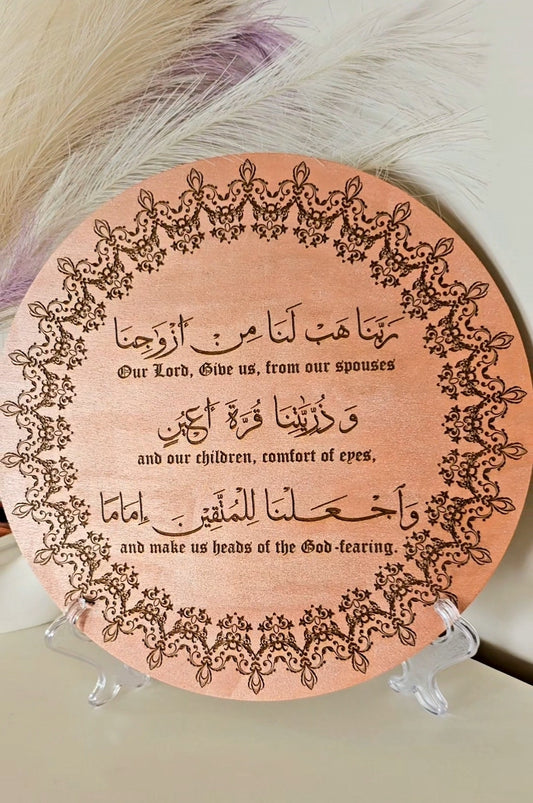 رَبَّنَا هَبْ لَنَا مِنْ أَزْوَجِنَا
Our Lord, Give us, from our spouses
وَ ذُرِّيَّتِنَا قُرَّةَ أَعْيُنٍ
and our children, comfort of eyes,
وَاَجْعَلْنَا لِلْمُتَّقِينَ إِمَامًا
and make us heads of the God-fearing.